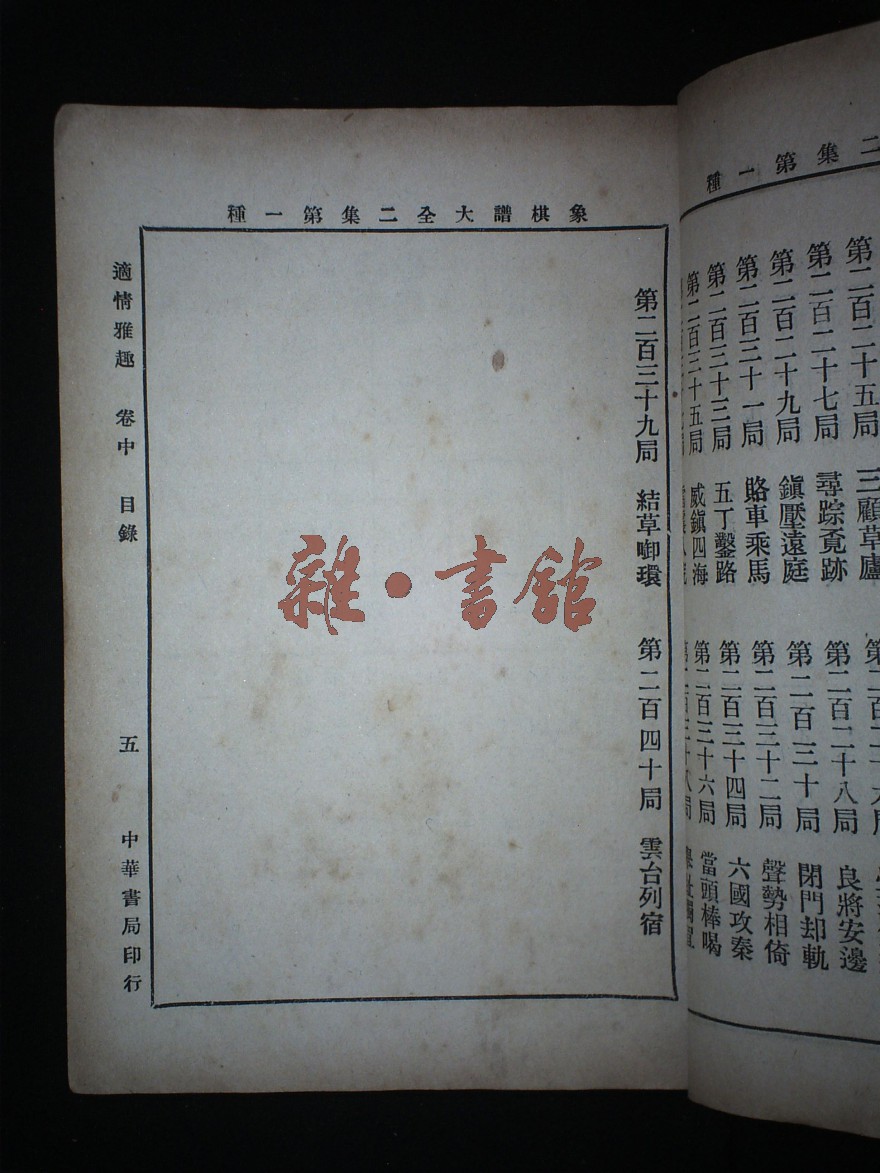 二集第一種
第二百二十五局 三顧草廬
第二百二十七局 尋踪覓跡
第二百二十八局 良將安邊
第二百二十九局 鎮壓遠庭
第二百三十局 閉門却軌
第二百三十一局 賂車乘馬
第二百三十二局 聲勢相倚
第二百三十三局 五丁鑿路
第二百三十四局 六國攻秦
第二百三十五局 威鎮四海
第二百三十六局 當頭棒喝
象棋譜大全二集第一種
第二百三十九局 結草啣環 第二百四十局 雲台列宿
適情雅趣 卷中 目錄 五 中華書局印行
雜•書館